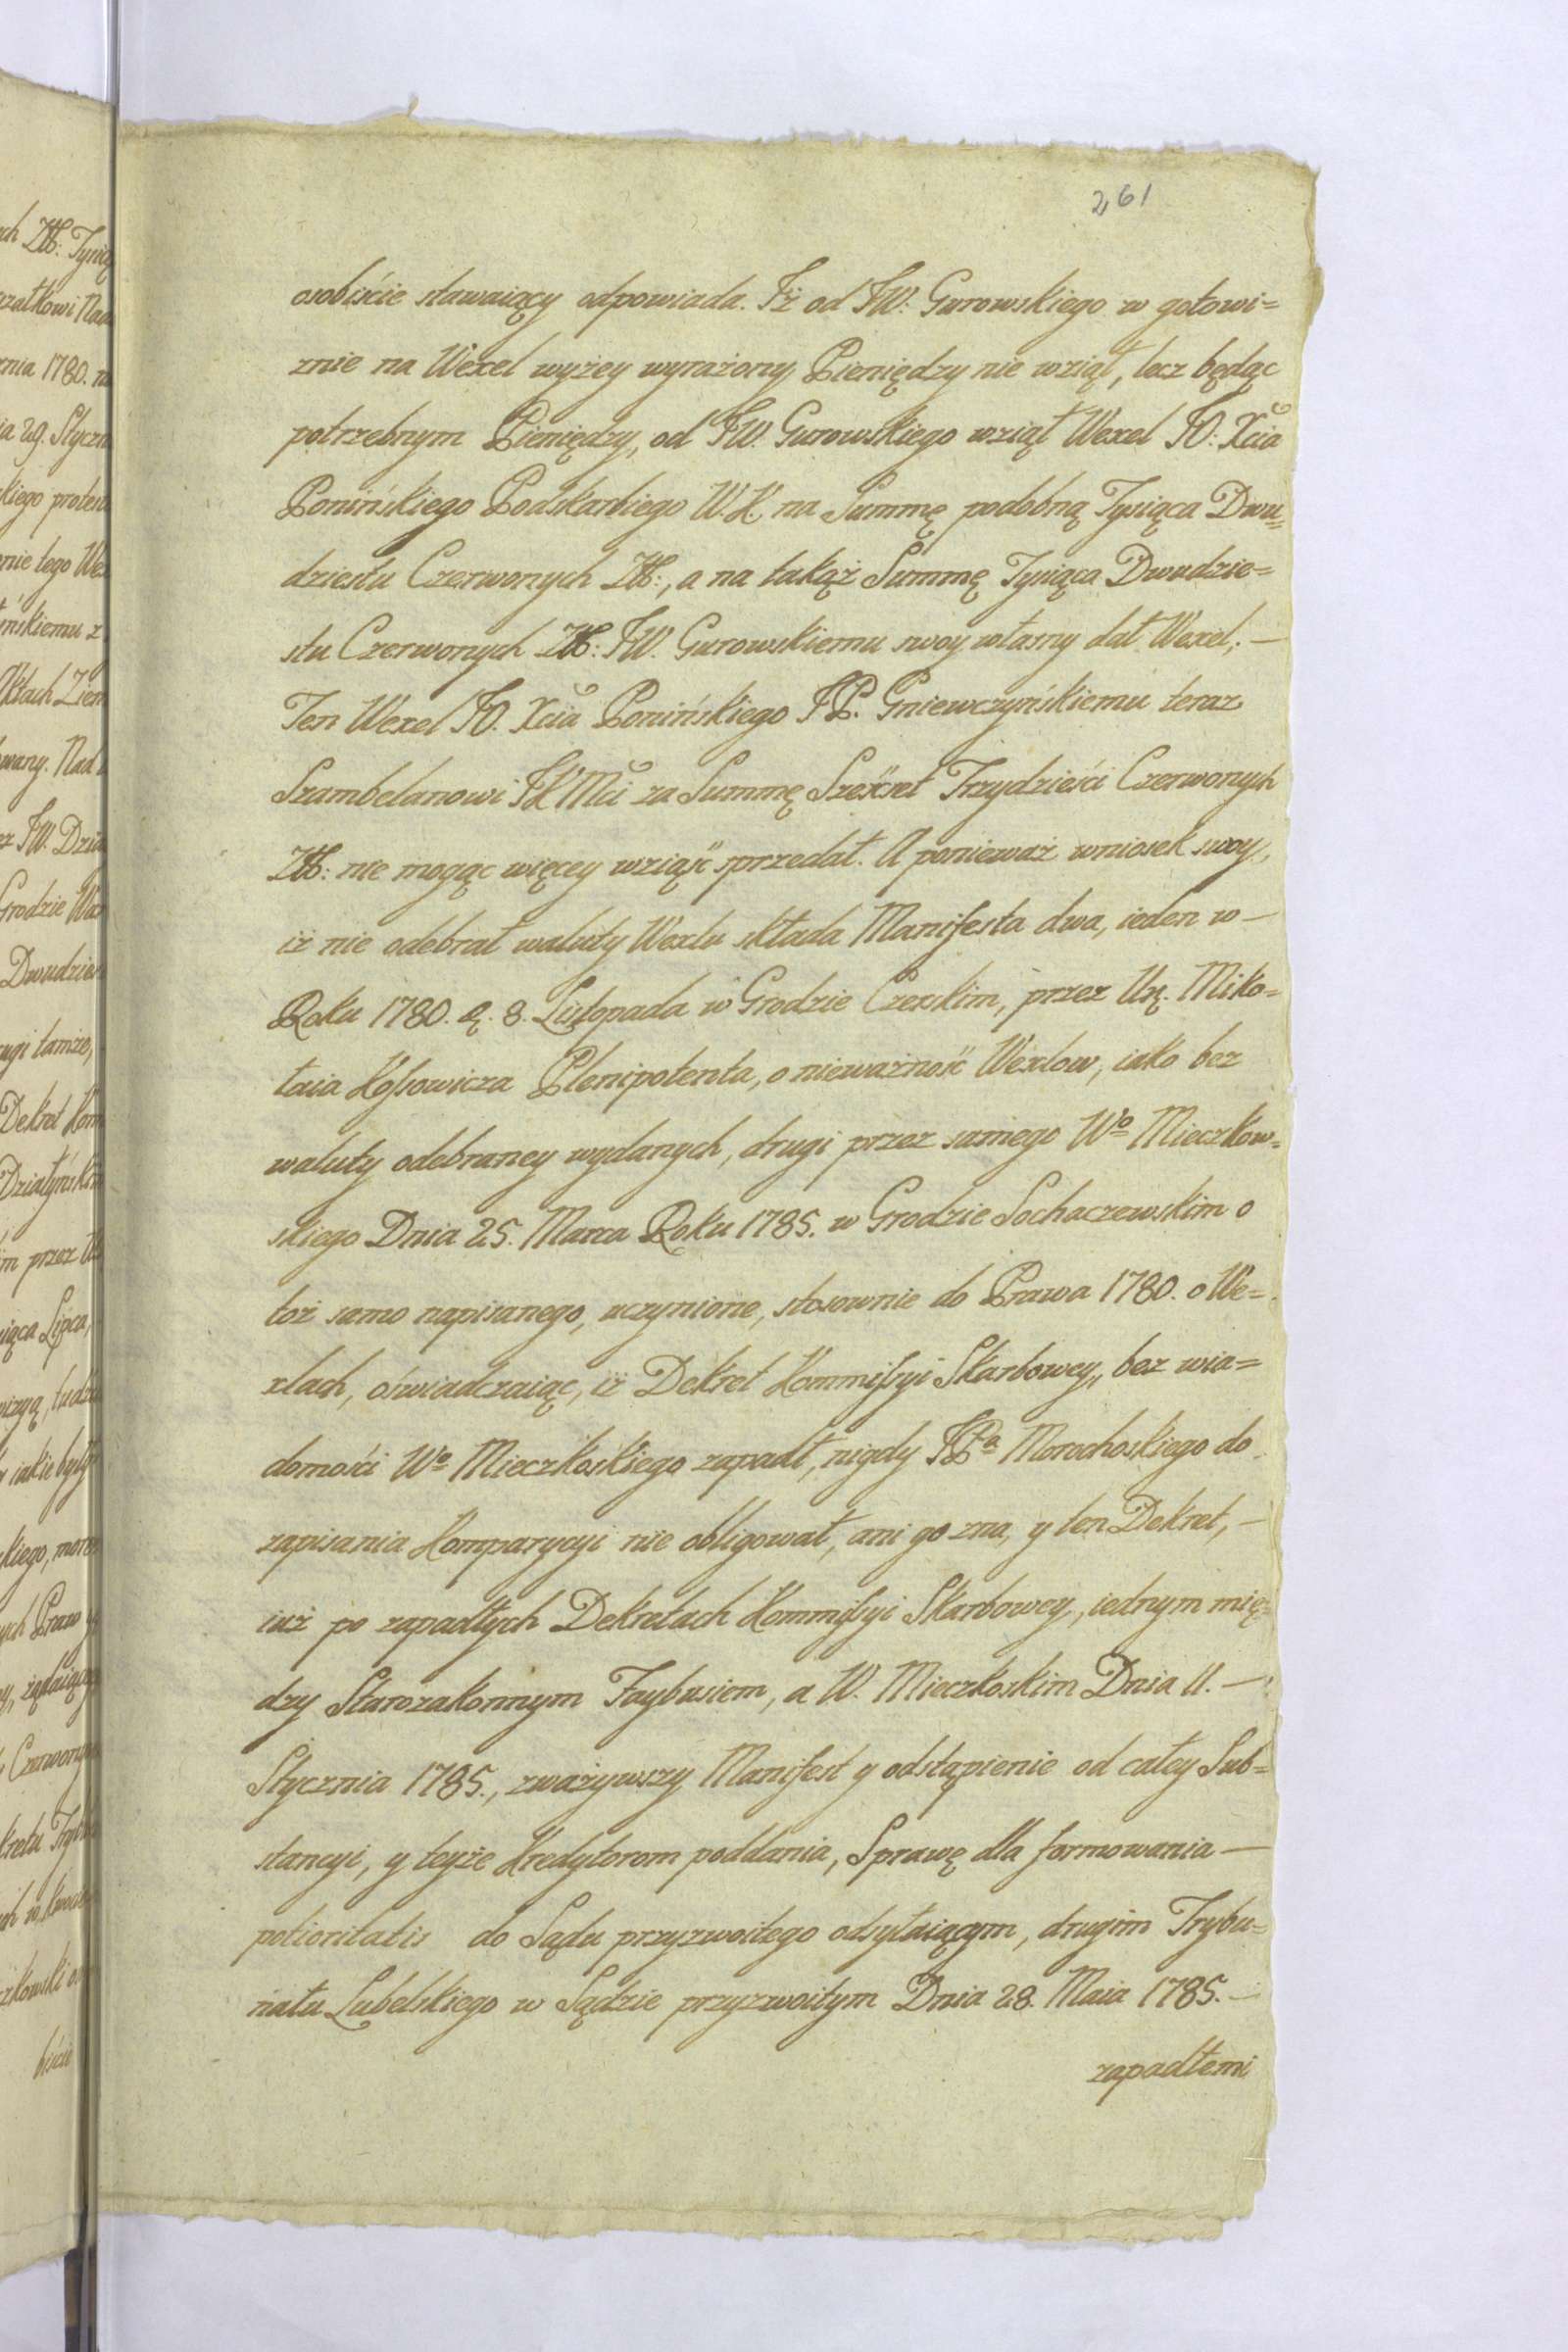 261
osobiście stawaiący odpowiada. Iż od JW: Gurowskiego w gotowi=
znie na Wexel wyżey wyrażony Pieniędzy nie wziął, lecz będąc
potrzebnym Pieniędzy, od JW. Gurowskiego wziął Wexel JO: Xcia
Ponińskiego Podskarbiego W.K. na Summę podobną Tysiąca Dwu=
dziestu Czerwonych Zł:, a na takąż Summę Tysiąca Dwudzie=
stu Czerwonych Zł: JW. Gurowskiemu swoy własny dał Wexel; —
Ten Wexel JO. Xcia Ponińskiego JP. Gniewczyńskiemu teraz
Szambelanowi JKMci za Summę Sześćset Trzydzieści Czerwonych
Zł: nie mogąc więcey wziąść sprzedał. A ponieważ wniosek swoy,
iż nie odebrał waluty Wexlu składa Manifesta dwa, ieden w —
Roku 1780. D. 8. Listopada w Grodzie Czerskim, przez Ur. Miko=
łaia Kossowicza Plenipotenta, o nieważność Wexlow, iako bez
waluty odebraney wydanych, drugi przez samego Wo Mieczkow=
skiego Dnia 25. Marca Roku 1785. w Grodzie Sochaczewskim o
toż samo napisanego, uczynione, stosownie do Prawa 1780. o We=
xlach, oświadczaiąc, iż Dekret Kommissyi Skarbowey, bez wia=
domości Wo Mieczkoskiego zapadł, nigdy JPa Morochoskiego do
zapisania Komparycyi nie obligował, ani go zna, y ten Dekret, —
iuż po zapadłych Dekretach Kommissyi Skarbowey, iednym mię=
dzy Starozakonnym Faybusiem, a W. Mieczkoskim Dnia 11. —
Stycznia 1785., zważywszy Manifest y odstąpienie od całey Sub=
stancyi, y teyże Kredytorom poddania, Sprawę dla formowania —
potioritatis do Sądu przyzwoitego odsyłaiącym, drugim Trybu=
nału Lubelskiego w Sądzie przyzwoitym Dnia 28. Maia 1785. —
zapadłemi